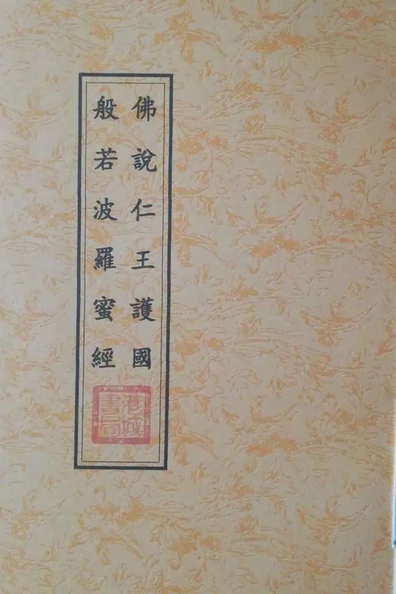 佛說仁王護國
般若波羅蜜經